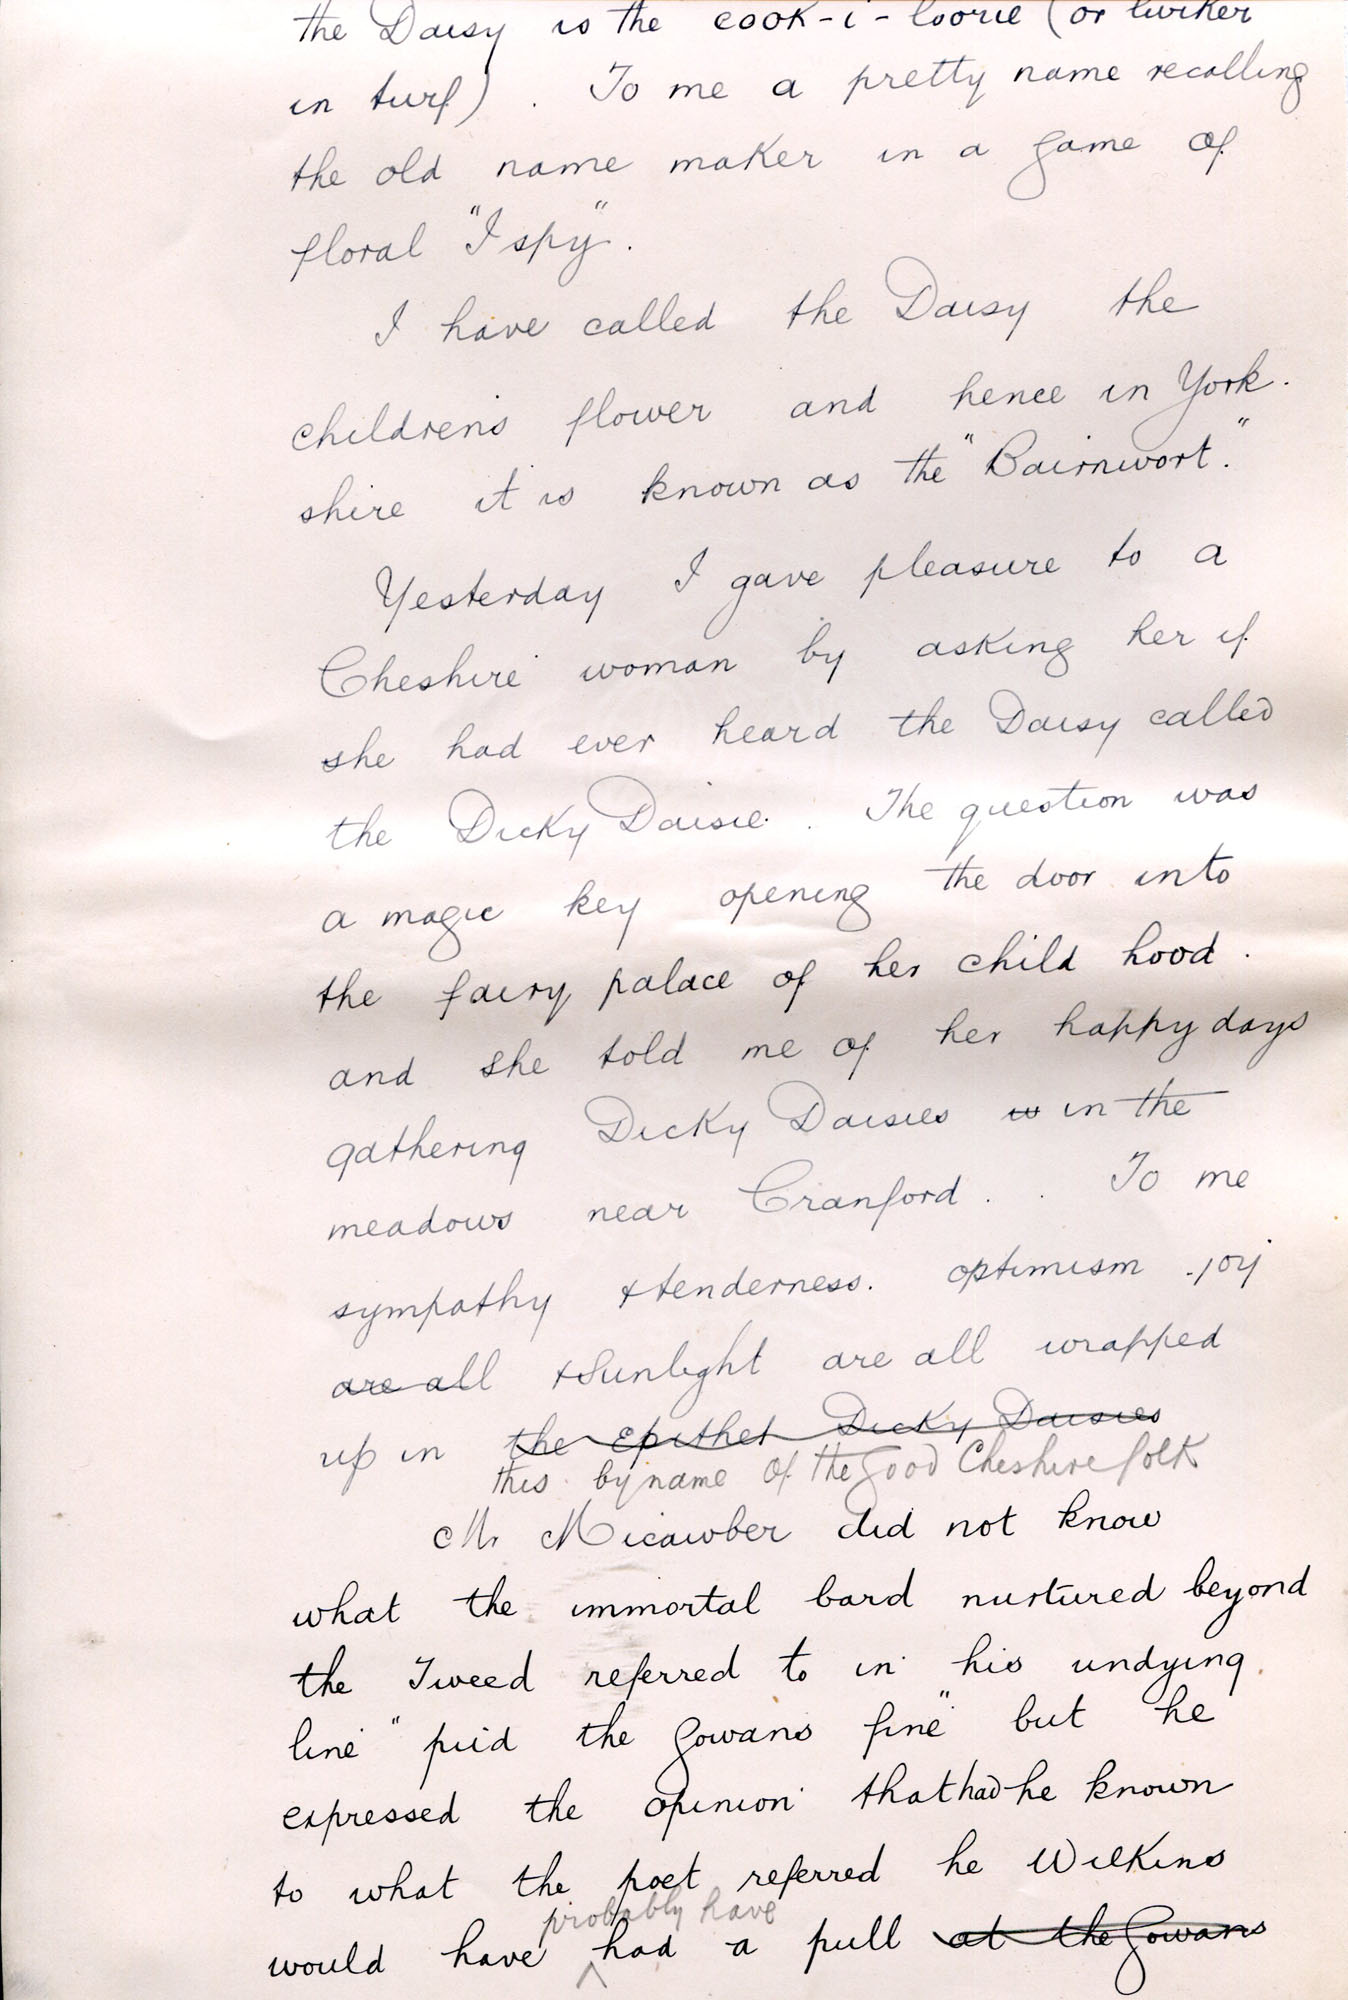 the Daisy is the cook-i-loorie (or lurker
in turf) . To me a pretty name recalling
the old name maker in a game of
floral "I spy".
I have called the Daisy the
childrens flower and hence in York-
shire it is known as the "Bairnwort."
Yesterday I gave pleasure to a
Cheshire woman by asking her if
she had ever heard the Daisy called
the Dicky Daisie. The question was
a magic key opening the door into
the fairy palace of her child hood.
and she told me of her happy days
gathering Dicky Daisies is in the
meadows near Cranford. . To me
sympathy & tenderness. optimism . joy
are all & Sunlight are all wrapped
up in the Epithet Dicky Daisies
this by name of the good Cheshire folk
Mr Micawber did not know
what the immortal bard nurtured beyond
the Tweed referred to in his undying
line "pu'd the Gowans fine" but he
expressed the opinion that had he known
to what the poet referred he Wilkins
probably have
would have had a pull at the Gowans